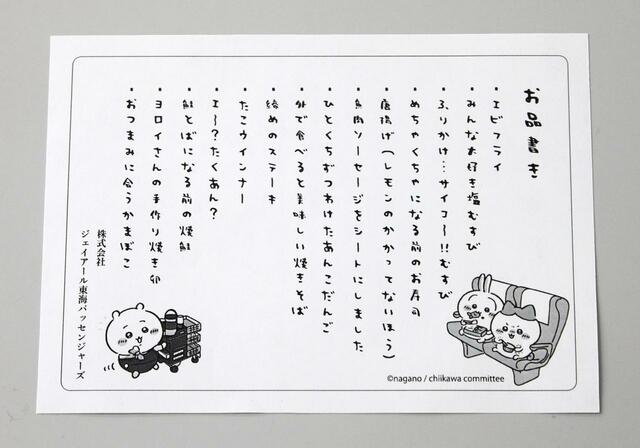 お品書き
・エビフライ
・みんな大好き塩むすび
・ふりかけ…サイコ～!!むすび
・めちゃくちゃになる前のお寿司
・唐揚げ(レモンのかかってないほう)
・魚肉ソーセージをシートにしました
・ひとくちずつわけたあんこだんご
・外で食べると美味しい焼きそば
・締めのステーキ
・たこウインナー
・エ～?たくあん?
・鮭とばになる前の焼鮭
・ヨロイさんの手作り焼き卵
・おつまみに合うかまぼこ
株式会社
ジェイアール東海パッセンジャーズ
©nagano / chiikawa committee